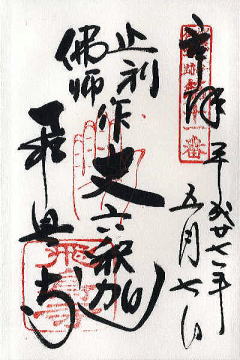 奉拝
平成廿七年
五月七日
止利
佛師
作
丈六釈迦
興寺